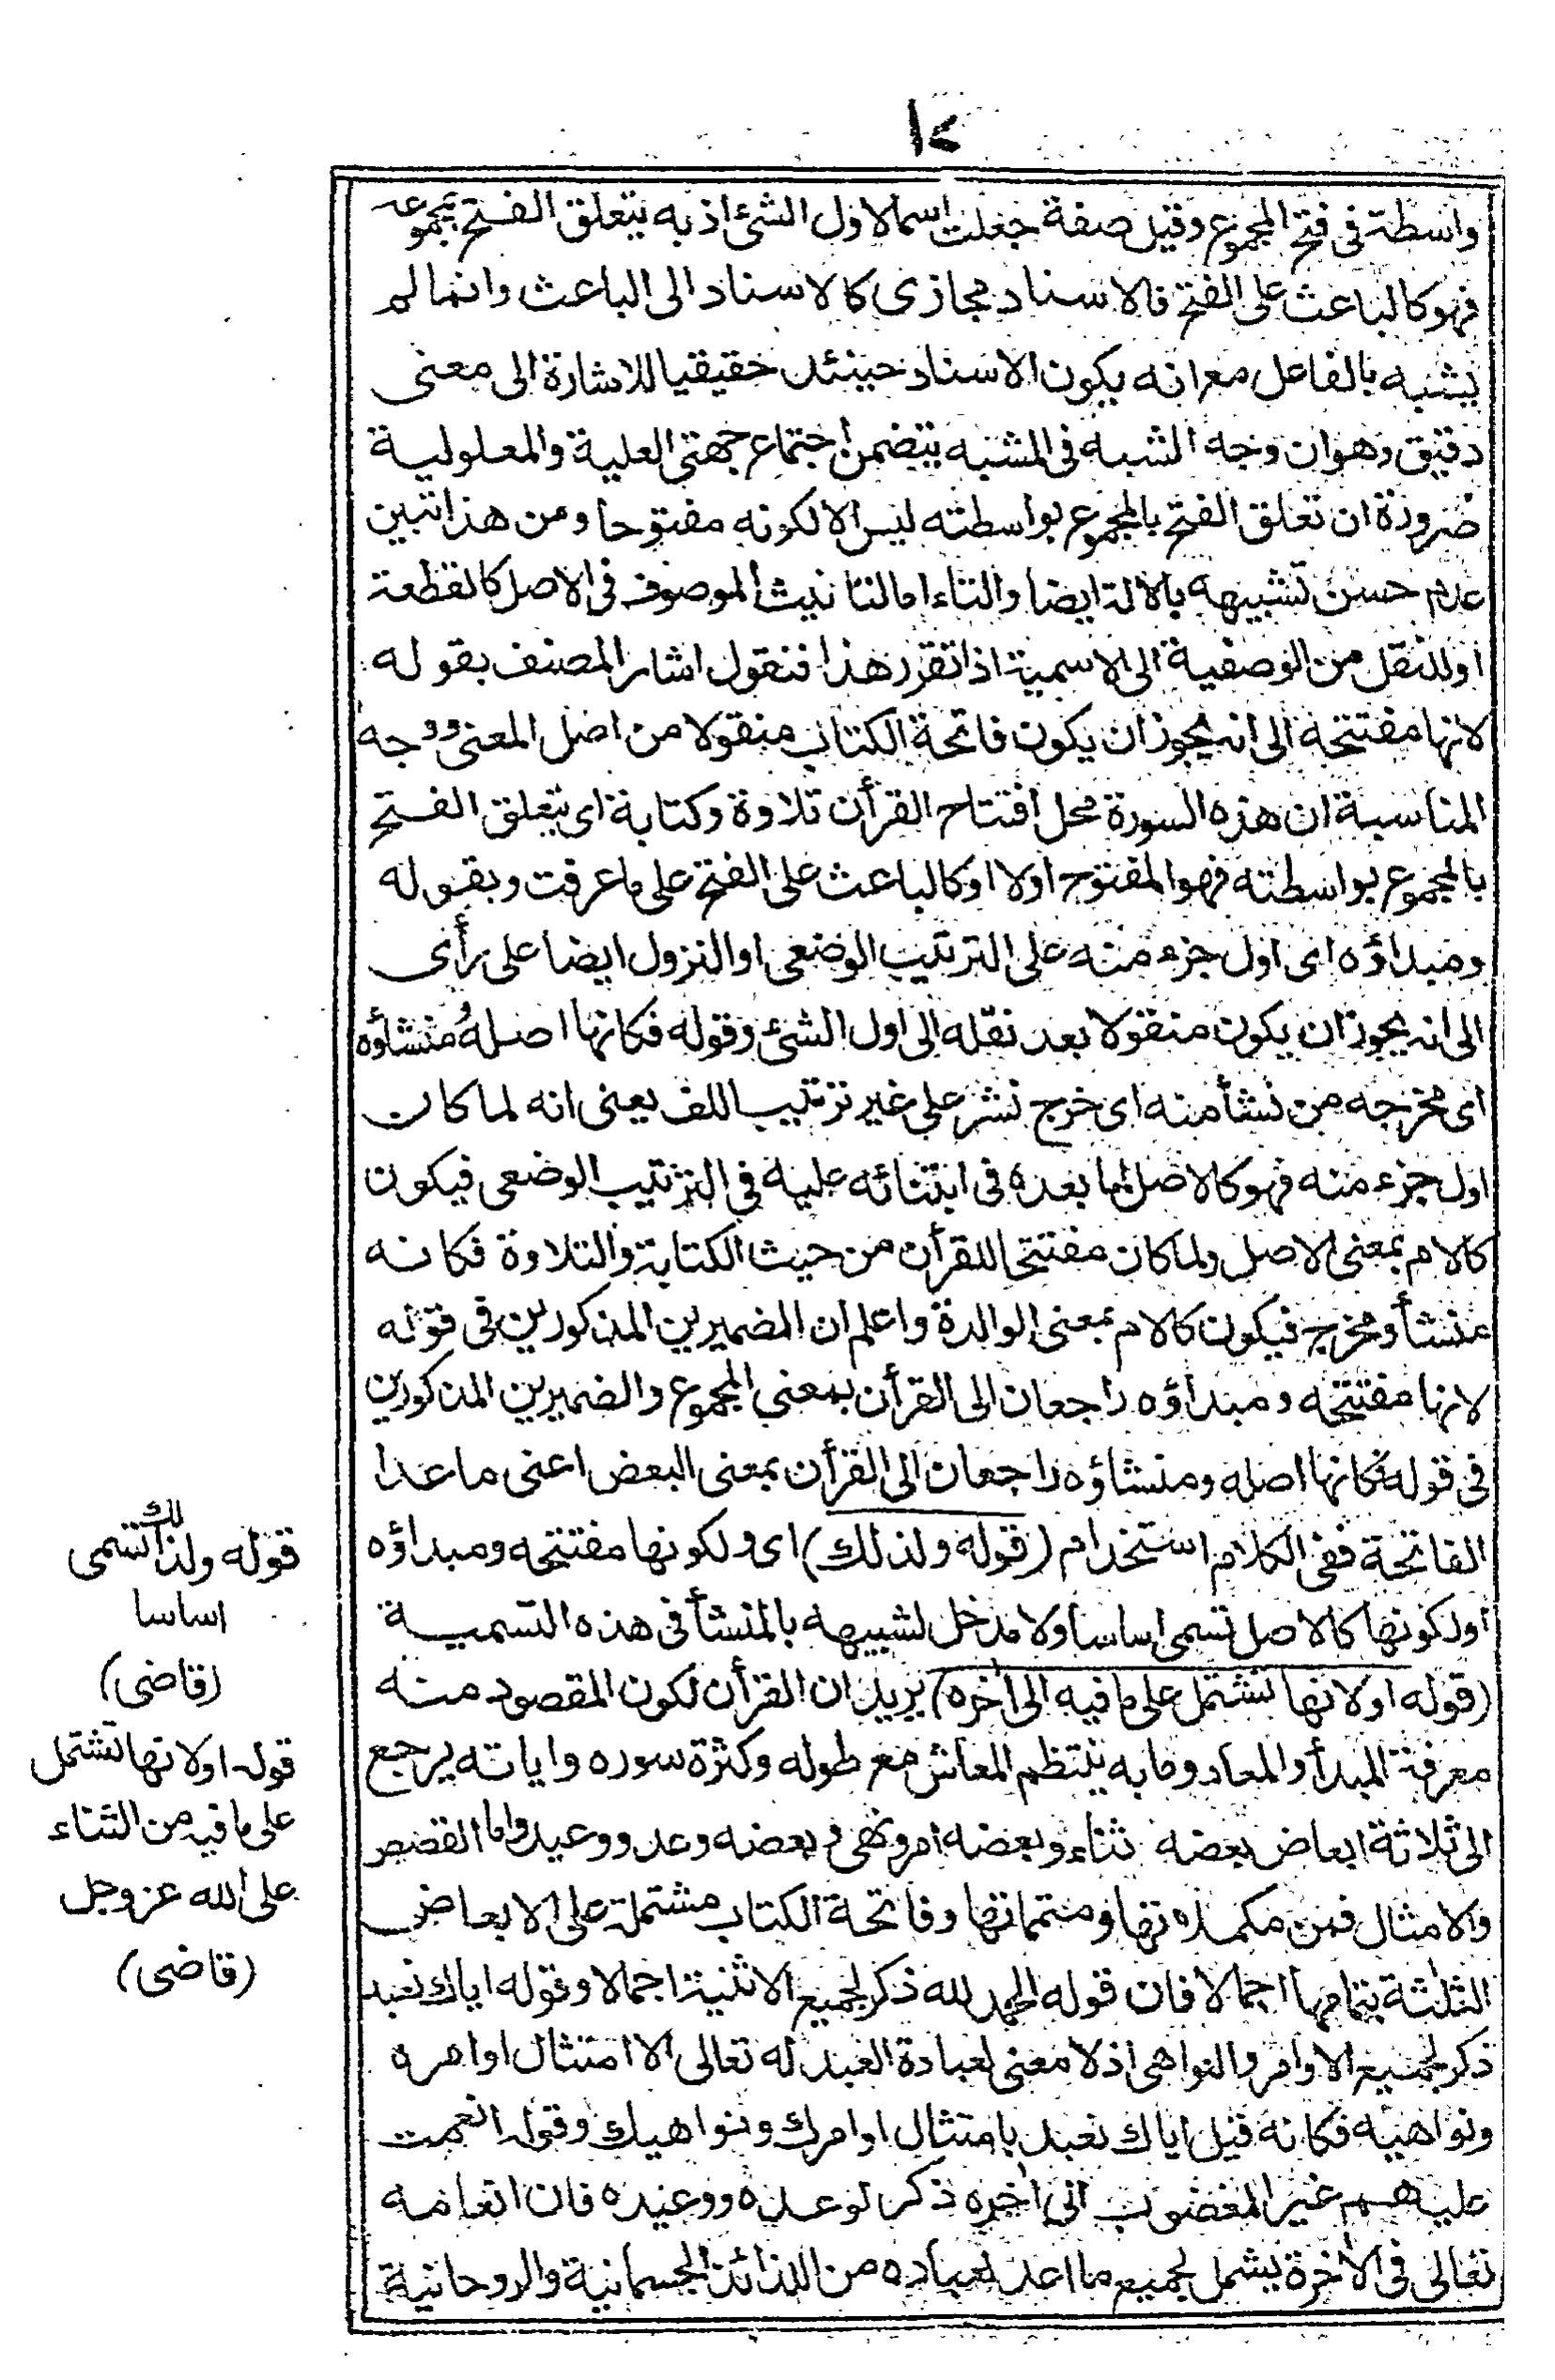 ١٢
واسطة فى فتح المجموع وقيل صفة جعلت اسما لاول الشئ اذ به يتعلق الفتح بمجموعه
فهو كالباعث على الفتح فالاسناد مجازى كالاسناد الى الباعث وانما لم
يشبه بالفاعل مع انه يكون الاسناد حينئذ حقيقيا للاشارة الى معنى
دقيق وهو ان وجه الشبه فى المشبه يتضمن اجتماع جهتى العلية والمعلولية
ضرورة ان تعلق الفتح بالمجموع بواسطته ليس الا لكونه مفتوحا ومن هذا تبين
عدم حسن تشبيهه بالالة ايضا والتاء اما لتانيث الموصوف فى الاصل كالقطعة
او للنقل من الوصفية الى الاسمية اذا تقرر هذا فنقول اشار المصنف بقوله
لانها مفتتحه الى انه يجوز ان يكون فاتحة الكتاب منقولا من اصل المعنى ووجه
المناسبة ان هذه السورة محل افتتاح القرأن تلاوة وكتابة اى يتعلق الفتح
بالمجموع بواسطته فهو المفتوح اولا او كالباعث على الفتح على ما عرفت وبقوله
ومبداؤه اى اول جزء منه على الترتيب الوضعى او النزول ايضا على رأى
الى انه يجوز ان يكون منقولا بعد نقله الى اول الشئ وقوله فكانها اصله ومنشاؤه
اى مخرجه من نشأ منه اى خرج نشر على غير ترتيب اللف يعنى انه لما كان
اول جزء منه فهو كالاصل لما بعده فى ابتنائه عليه فى الترتيب الوضعى فيكون
كالام بمعنى الاصل ولما كان مفتتحا للقرأن من حيث الكتابة والتلاوة فكانه
منشأ ومخرج فيكون كالام بمعنى الوالدة واعلم ان الضميرين المذكورين فى قوله
لانها مفتتحه ومبداؤه راجعان الى القرأن بمعنى المجموع والضميرين المذكورين
فى قوله فكانها اصله ومنشاؤه راجعان الى القرأن بمعنى البعض اعنى ما عدا
الفاتحة ففى الكلام استخدام (قوله ولذلك) اى ولكونها مفتتحه ومبداؤه
او لكونها كالاصل تسمى اساسا ولا مدخل لشبيهه بالمنشأ فى هذه التسمية
(قوله او لانها تشتمل على ما فيه الى اخره) يريد ان القرأن لكون المقصود منه
معرفة المبدأ والمعاد وما به ينتظم المعاش مع طوله وكثرة سوره واياته يرجع
الى ثلاثة ابعاض بعضه ثناء وبعضه امر ونهى وبعضه وعد ووعيد واما القصص
والامثال فمن مكملاتها ومتمماتها وفاتحة الكتاب مشتملة على الابعاض
الثلثة بتمامها اجمالا فان قوله الحمد لله ذكر لجميع الاثنية اجمالا وقوله اياك نعبد
ذكر لجميع الاوامر والنواهى اذ لا معنى لعبادة العبد له تعالى الا امتثال اوامره
ونواهيه فكانه قيل اياك نعبد بامتثال اوامرك ونواهيك وقوله انعمت
عليهم غير المغضوب الى اخره ذكر لوعده ووعيده فان انعامه
تعالى فى الأخرة يشمل لجميع ما اعد لعباده من اللذائذ الجسمانية والروحانية
قوله ولذلك تسمى
اساسا
(قاضى)
قوله او لانها تشتمل
على ما فيه من الثناء
على الله عز وجل
(قاضى)